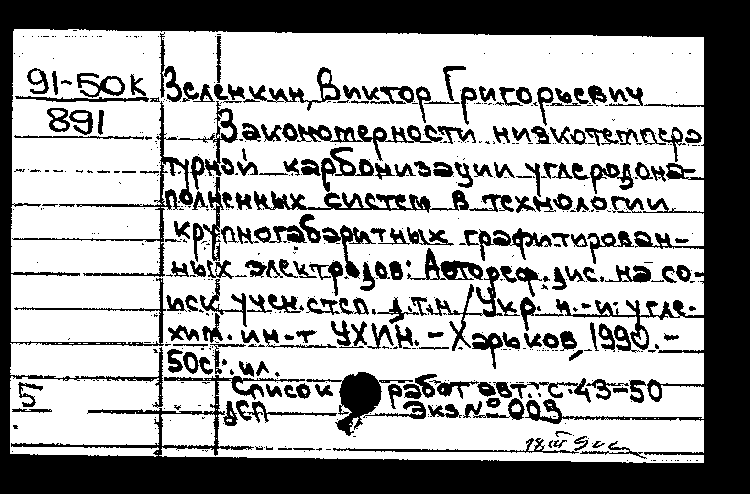 91-50К Зеленкин, Виктор Григорьевич
891 Закономерности низкотемпера
турной карбонизации углеродона-
полненных систем в технологии
крупногабаритных графитирован-
ных электродов: Автореф. дис. на со-
иск. учен. степ. д.т.н. / Укр. н.-и. угле-
хим. ин-т УХИН. - Харьков, 1990. -
50с.: ил.
5 Список работ авт.: с. 43-50
ДСП Экз № 003
18 III